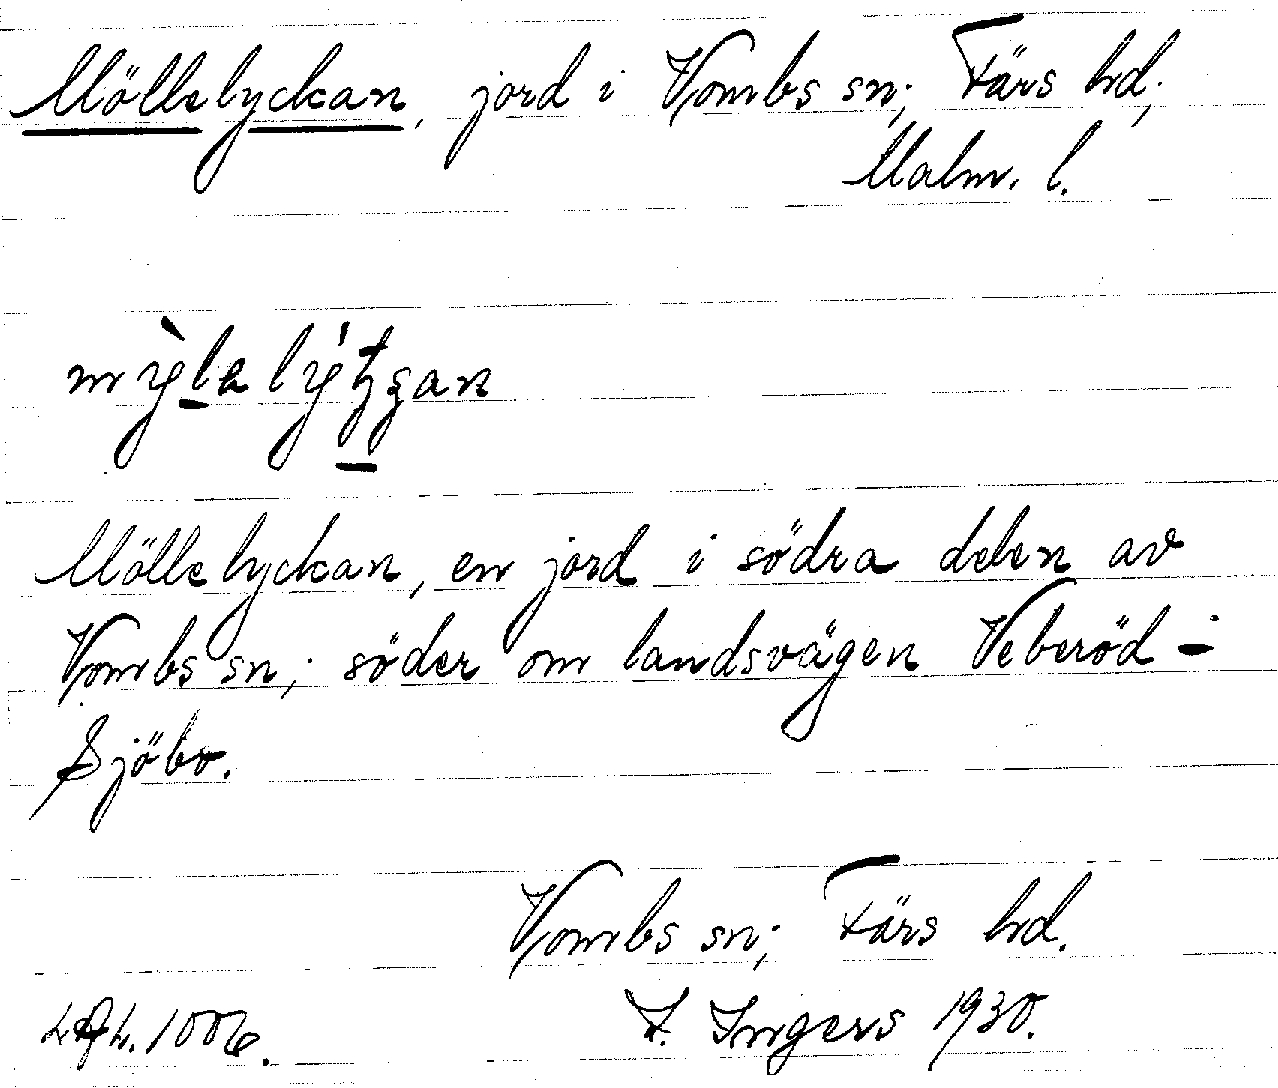 Möllelyckan, jord i Vombs sn; Färs hd;
Malm. l.
Möllelyckan, en jord i södra delen av
Vombs sn; söder om landsvägen Veberöd -
Sjöbo.
Vombs sn; Färs hd.
1006. I. Ingers 1930.